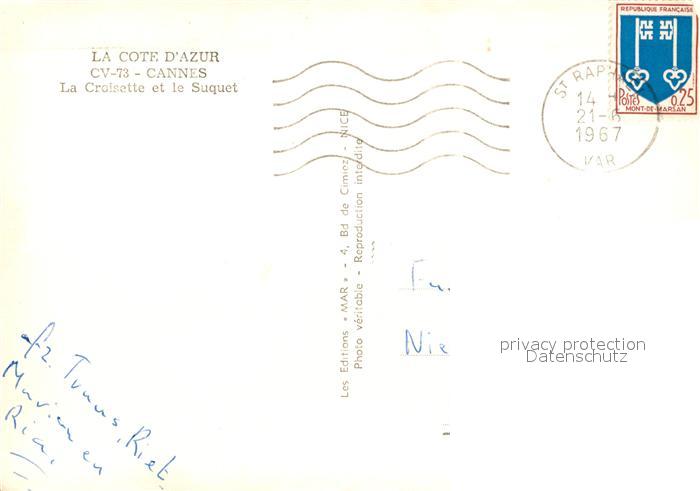 LA COTE D'AZUR
CV-73 - CANNES
La Croisette et le Suquet
Les Editions « MAR » - 4, Bd de Cimiez - NICE
Photo véritable - Reproduction interdite
REPUBLIQUE FRANÇAISE
Postes 0,25
MONT-DE-MARSAN
ST RAPH
14
21-6
1967
VAR
Nie
privacy protection
Datenschutz
Riet
en